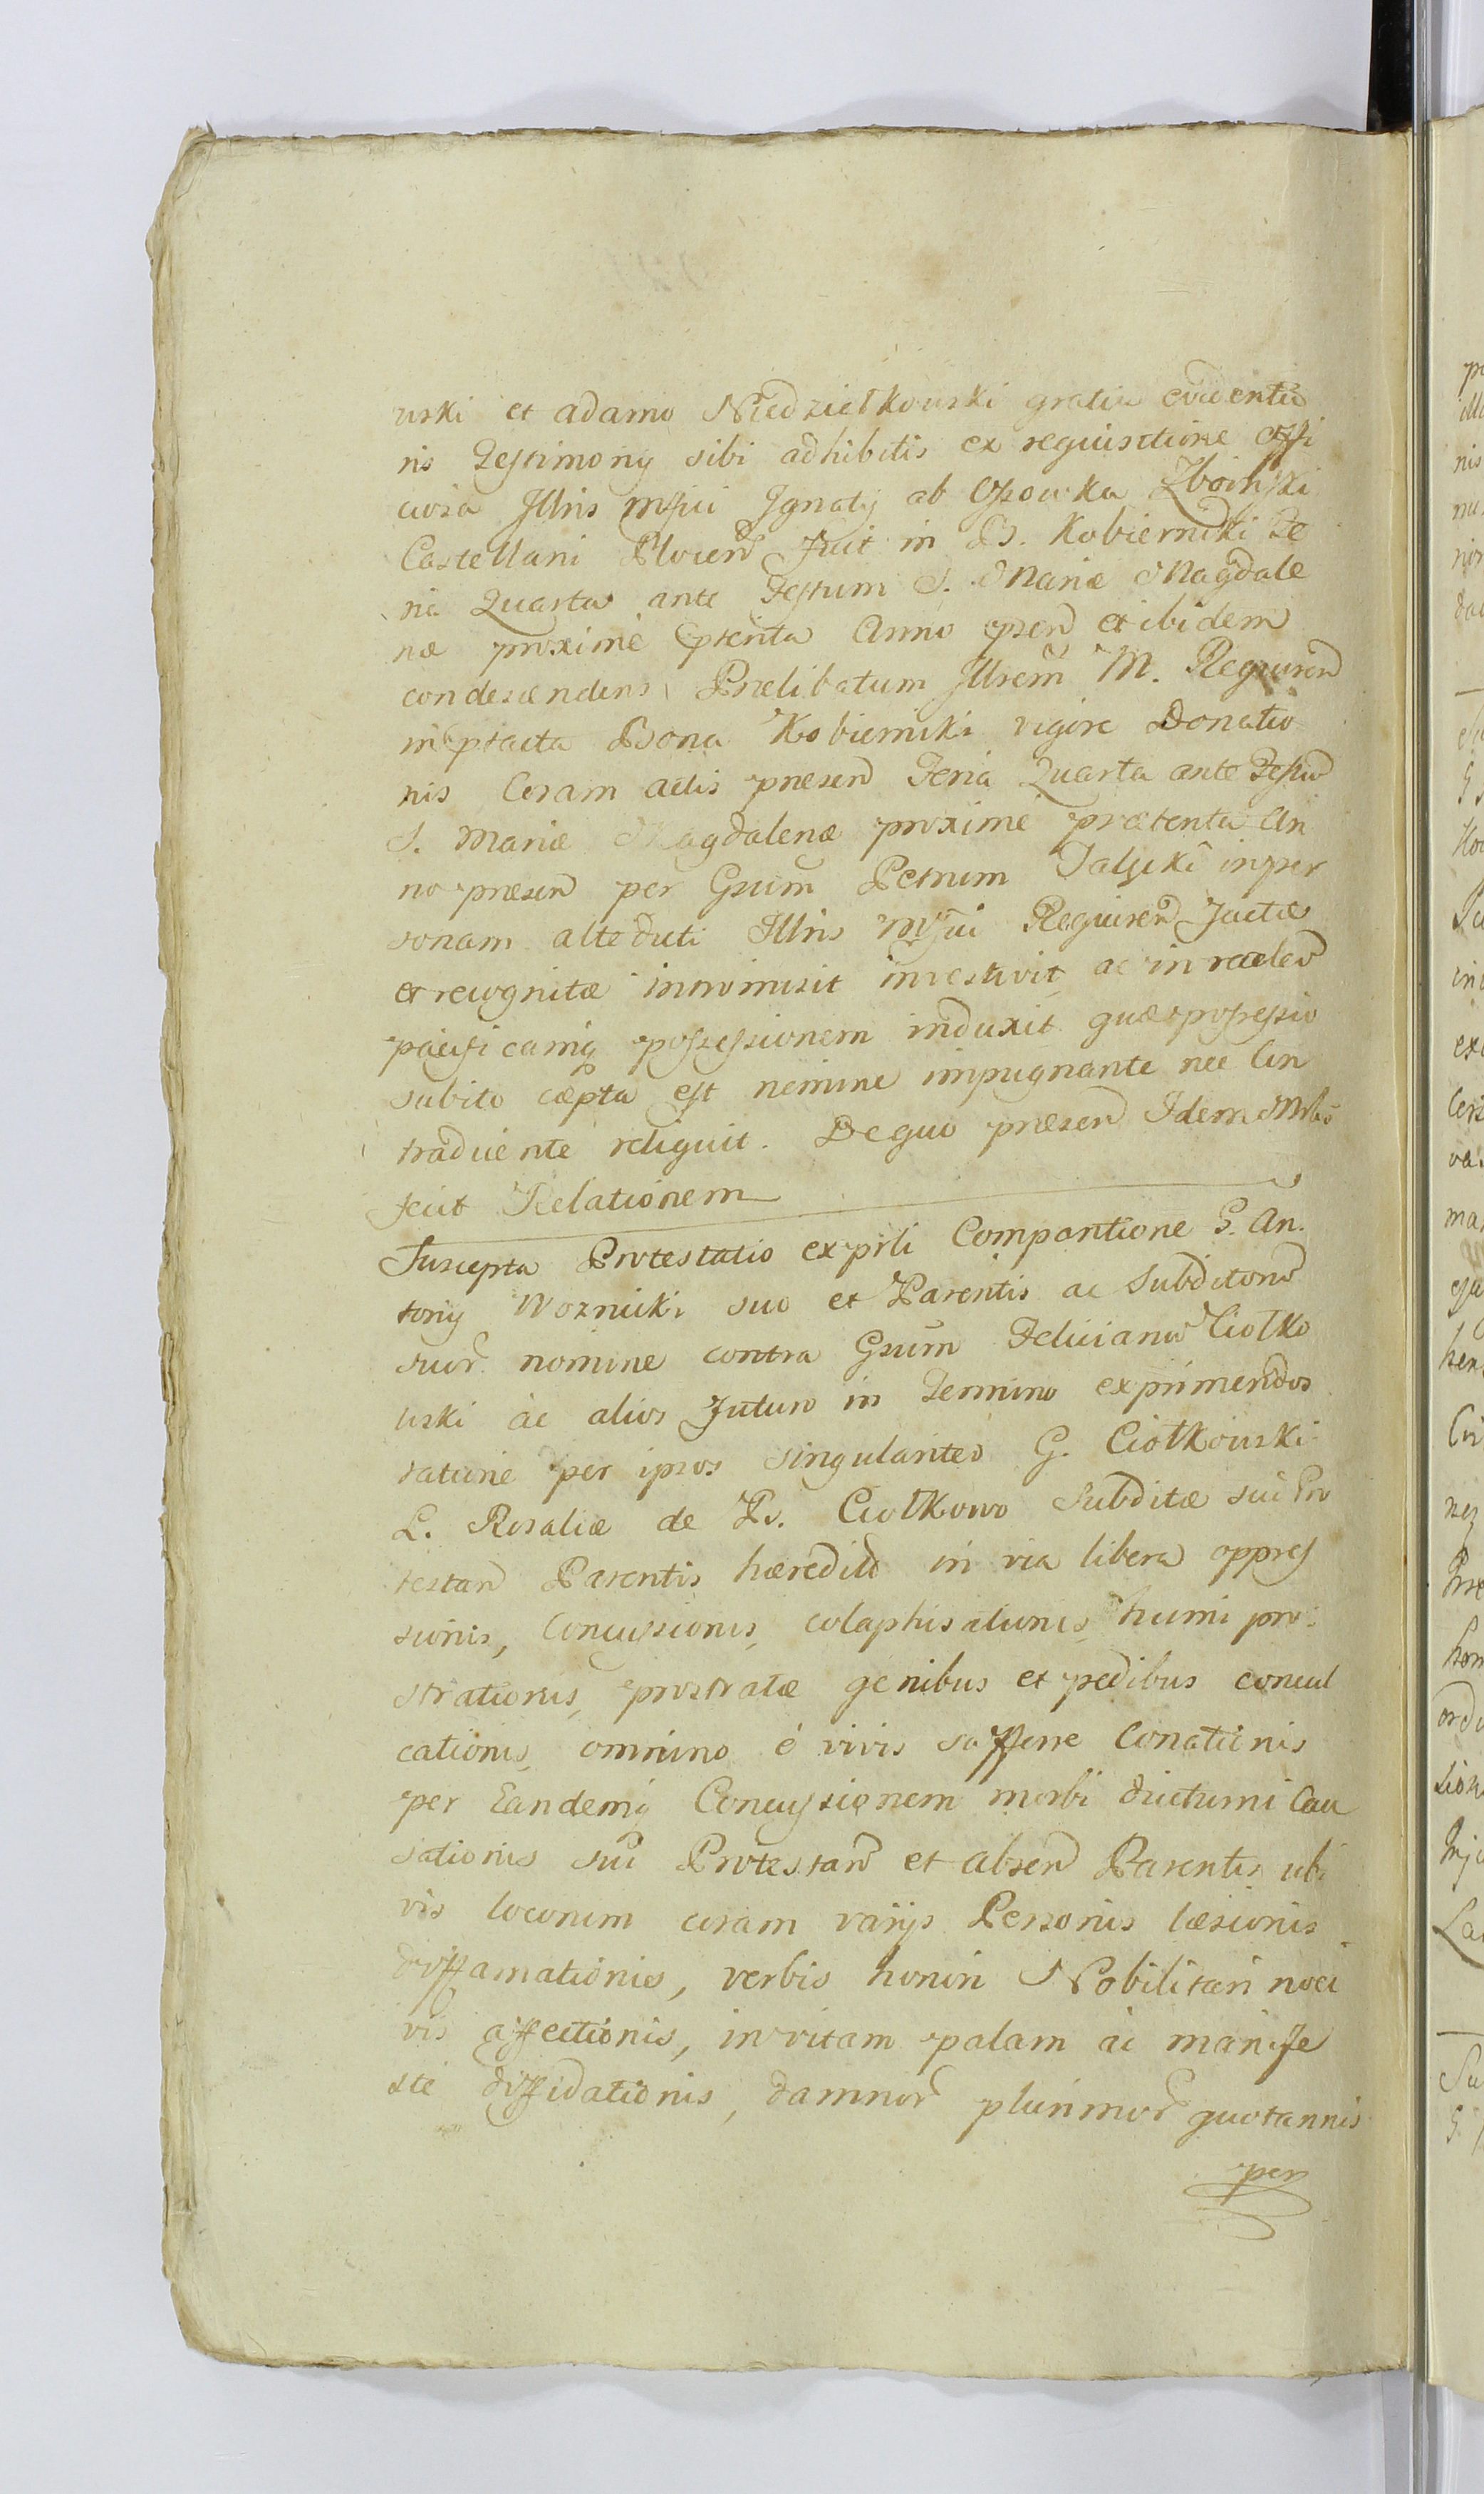 wski et adamo Niedziełkowski gratia evidentio
ris Testimonÿ sibi adhibitis ex requisitione offi
ciosa Jllris Mfici Jgnatÿ ab Ossowka Zboiński
Castellani Plocen fuit in B. Kobierniki Fe
ria Quarta ante Festum S. Mariæ Magdale
næ proxime ptenta Anno præsen et ibidem
condescendens Prælibatum Jllrem M. Requiren
in ptacta Bona Kobierniki vigore Donatio
nis Coram actis præsen Feria Quarta ante Festum
S. Mariæ Magdalenæ proxime prætenta An
no præsen per Gsum Petrum Jalski in per
sonam altedicti Jllris Mfici Requiren factæ
et recognitæ intromisit investivit ac in realem
pacificamq possessionem induxit quæ possessio
subito cæpta est nemine impugnante nec Con
tradicente reliquit. De quo præsen Jdem Mrlis
fecit Relationem
Suscepta Protestatio ex prli Comparitione G. An
tonÿ Woznicki suo et Parentis ac Subditorum
suor nomine contra Gsum Felicianum Ciołko
wski ac alios futuro in Termino exprimendos
ratione per ipsos singulariter G. Ciołkowski
L. Rosaliæ de Vs. Ciołkowo Subditæ sui Pro
testan Parentis hæredit in via libera oppres
sionis, Concussionis, colaphisationis humi pro
strationis, prostratæ genibus et pedibus concul
cationis, omnino é vivis sufferre Conationis
per Eandemq Concussionem morbi diuturni Cau
sationis sui Protestan et absen Parentis ubi
vis locorum coram varÿs Personis læsionis
diffamationis, verbis honori Nobilitari noci
vis affectionis, in vitam palam ac manife
ste diffidationis, damnor plurimor quotannis
per